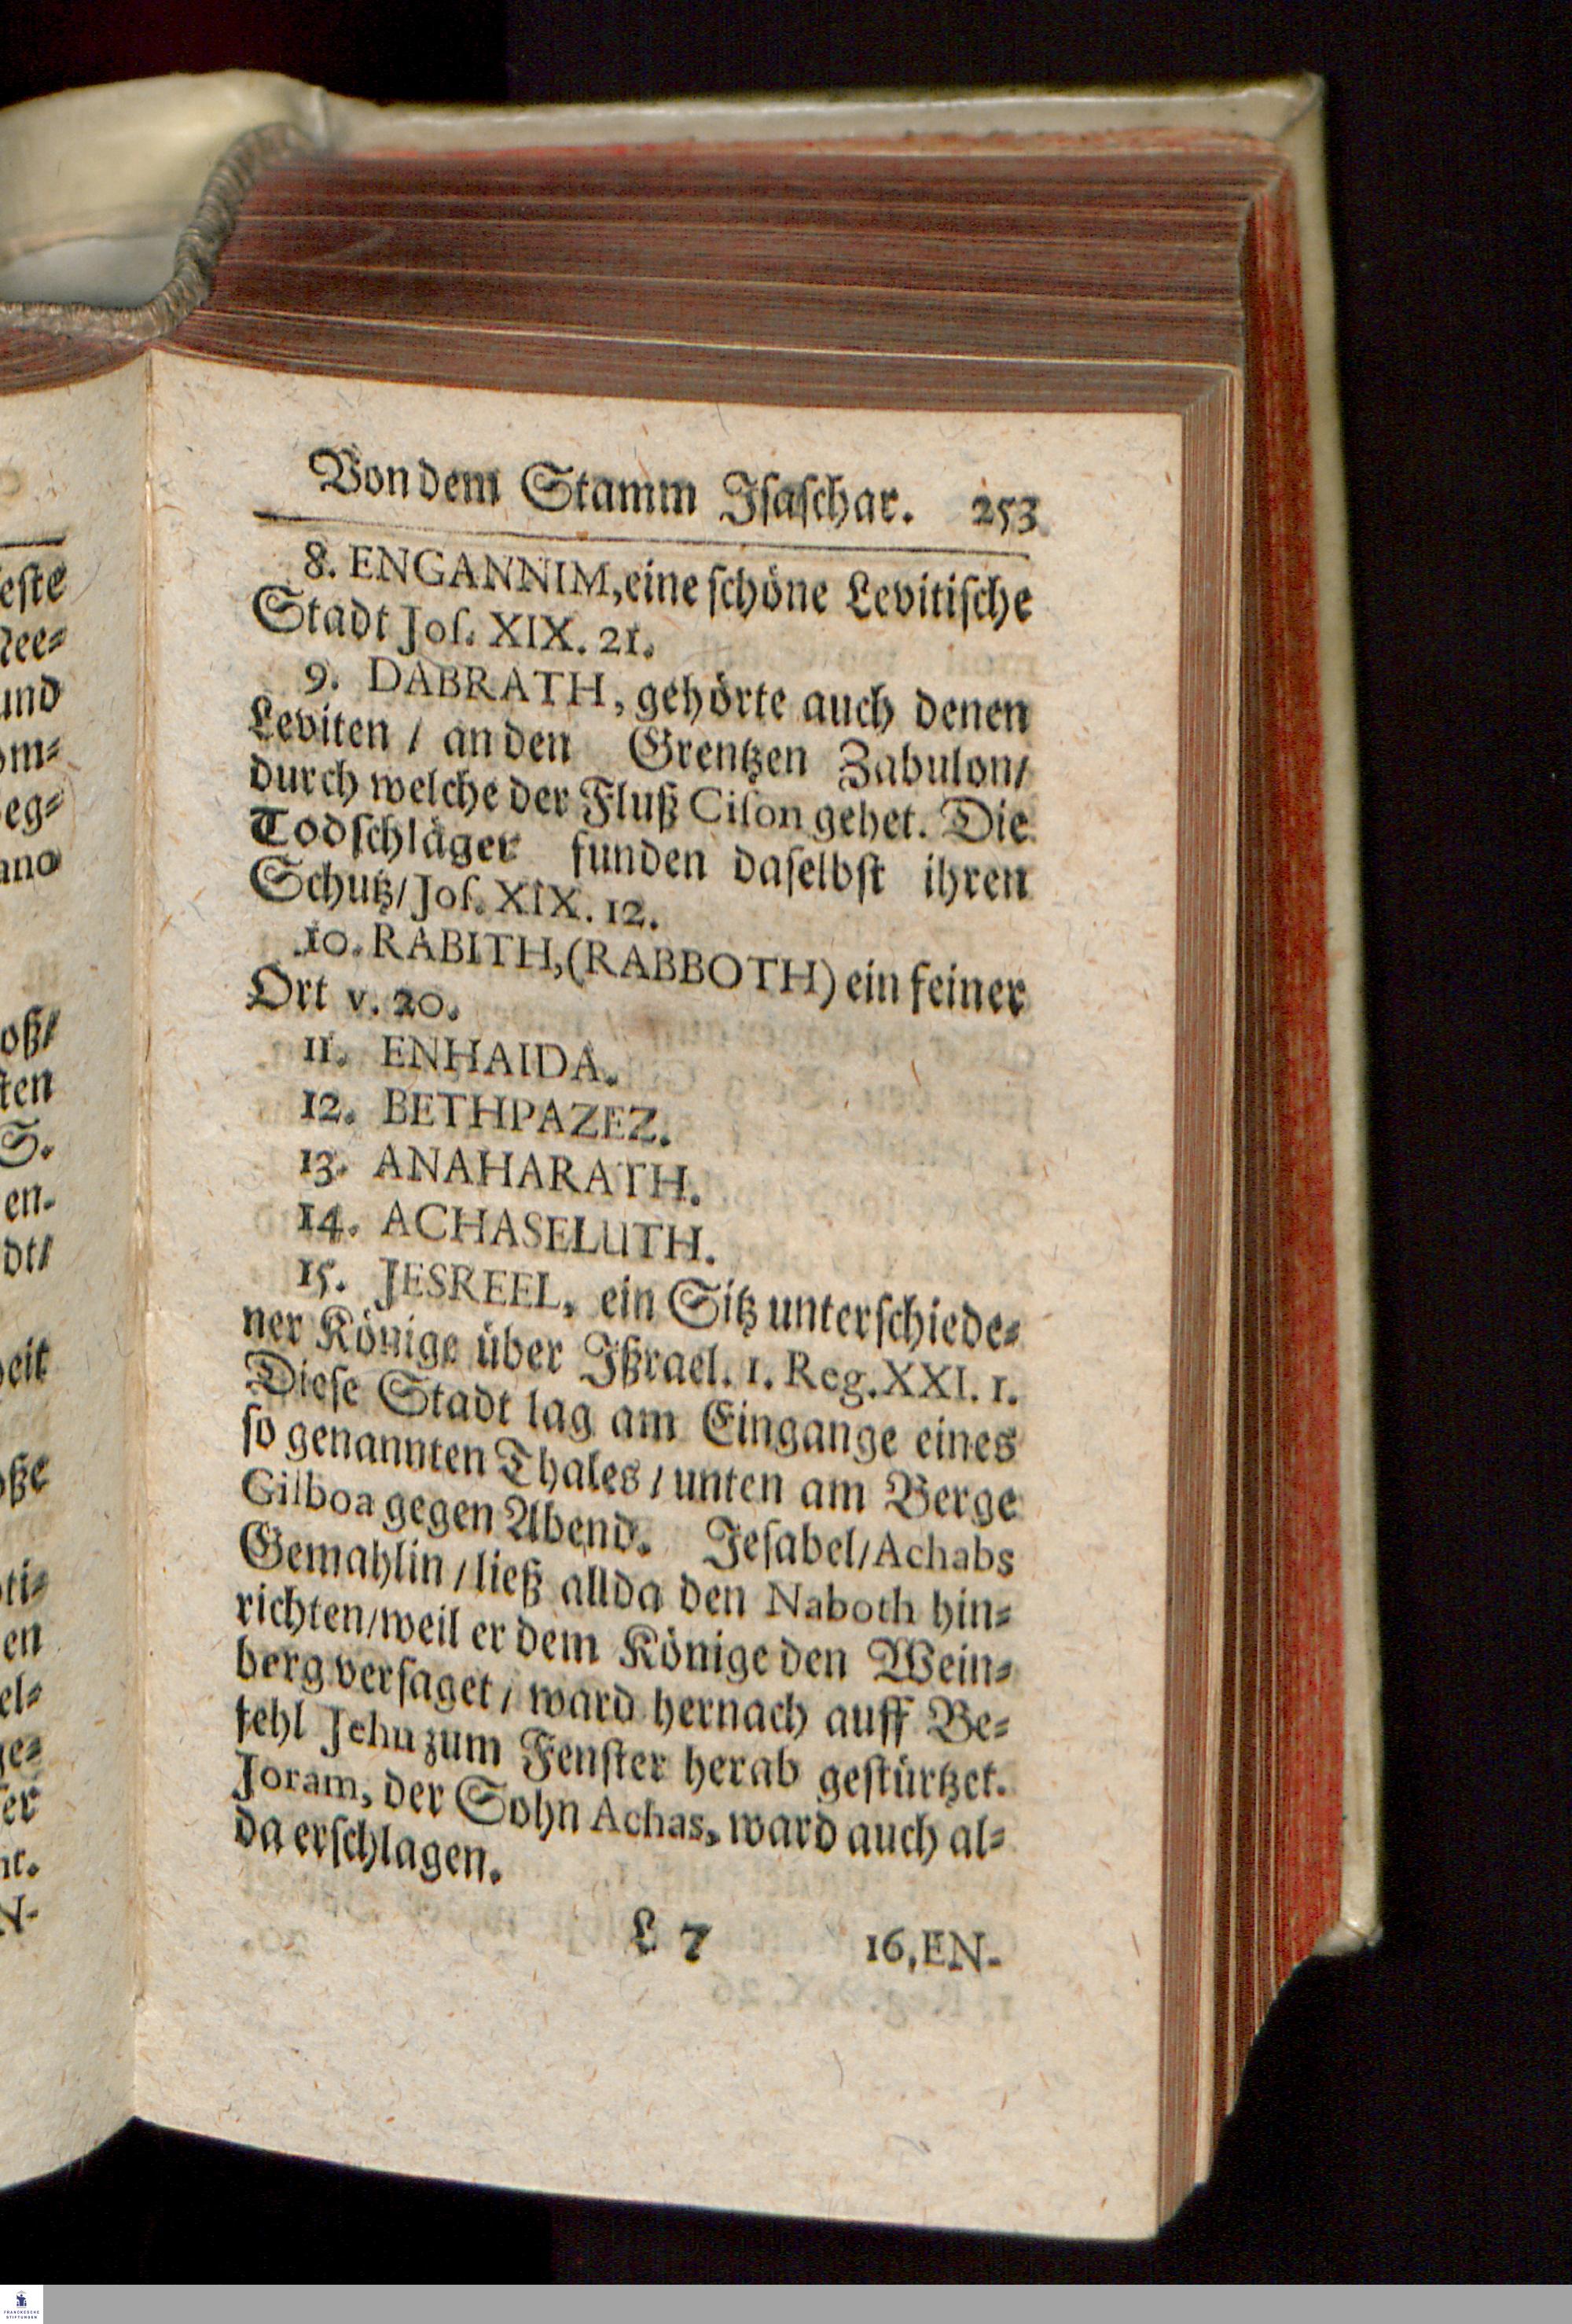 Von dem Stamm Isaschar. 253
8. ENGANNIM, eine schöne Levitische
Stadt Jos. XIX. 21.
9. DABRATH, gehörte auch denen
Leviten / an den Grentzen Zabulon/
durch welche der Fluß Cison gehet. Die
Todschläger funden daselbst ihren
Schutz/ Jos. XIX. 12.
10. RABITH, (RABBOTH) ein feiner
Ort v. 20.
11. ENHAIDA.
12. BETHPAZEZ.
13. ANAHARATH.
14. ACHASELUTH.
15. JESREEL, ein Sitz unterschiede=
ner Könige über Ißrael. 1. Reg. XXI. 1.
Diese Stadt lag am Eingange eines
so genannten Thales / unten am Berge
Gilboa gegen Abend. Jesabel/ Achabs
Gemahlin / ließ allda den Naboth hin=
richten/ weil er dem Könige den Wein=
berg versaget / ward hernach auff Be=
fehl Jehu zum Fenster herab gestürtzet.
Joram, der Sohn Achas, ward auch al=
da erschlagen.
L 7 16, EN-
este
Nee=
und
om=
eg=
ano
oß/
sten
S.
en-
dt/
eit
oße
ti=
en
el=
ge=
er
nt.
N-
FRANCKESCHE
STIFTUNGEN